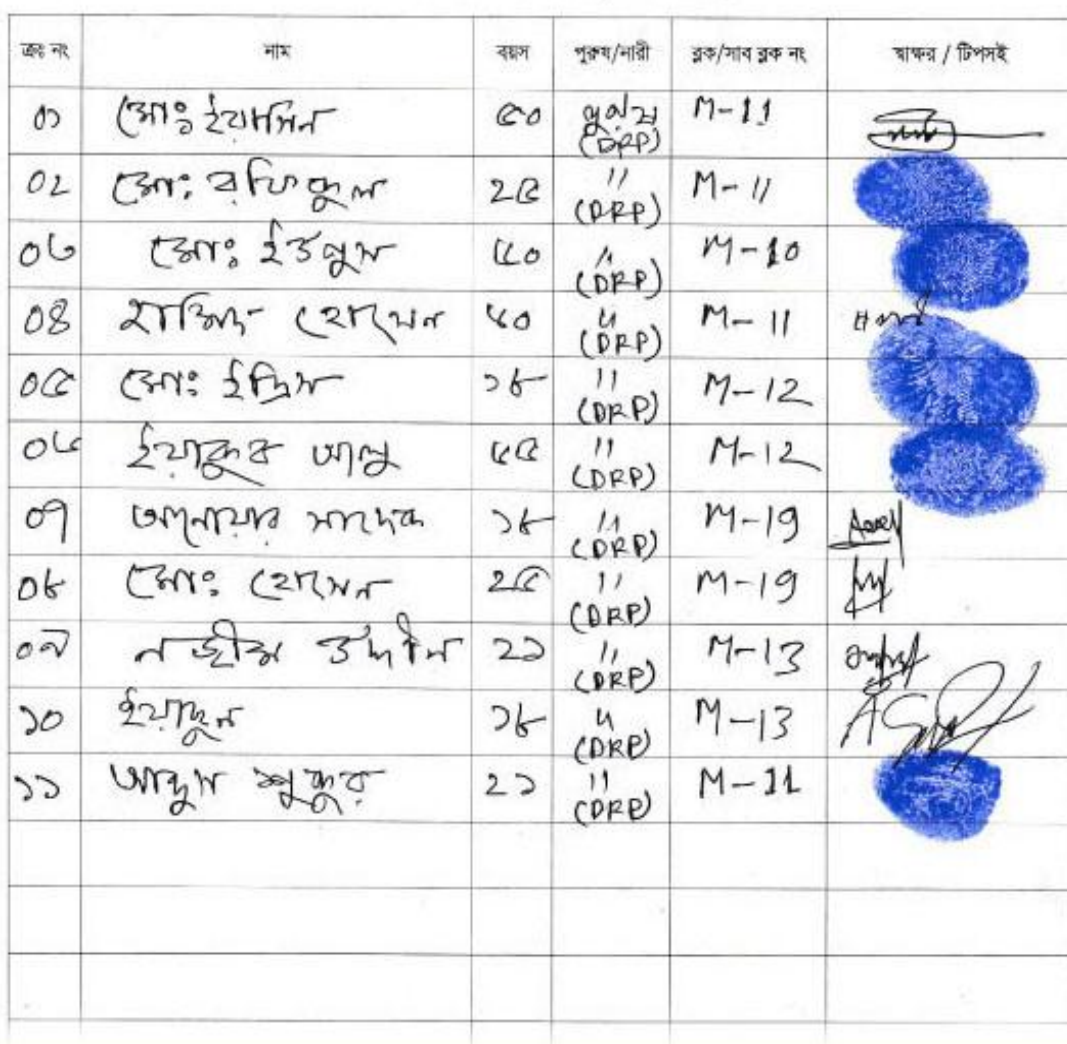 ক্রঃ নং নাম বয়স পুরুষ/নারী ব্লক/সাব ব্লক নং স্বাক্ষর / টিপসই
০১ মোঃ ইয়াসিন ৫০ পুরুষ (DRP) M-11
০২ মোঃ রফিকুল ২৫ " (DRP) M-11
০৩ মোঃ ইউনুস ৫০ " (DRP) M-10
০৪ হামিদ হোসেন ৬০ " (DRP) M-11
০৫ মোঃ ইদ্রিস ১৮ " (DRP) M-12
০৬ ইয়াকুব আলু ৫৫ " (DRP) M-12
০৭ আনোয়ার সাদেক ১৮ " (DRP) M-19
০৮ মোঃ হোসেন ২৫ " (DRP) M-19
০৯ নজীম উদ্দীন ২১ " (DRP) M-13
১০ ১৮ " (DRP) M-13
১১ আব্দুস শুকুর ২১ " (DRP) M-11